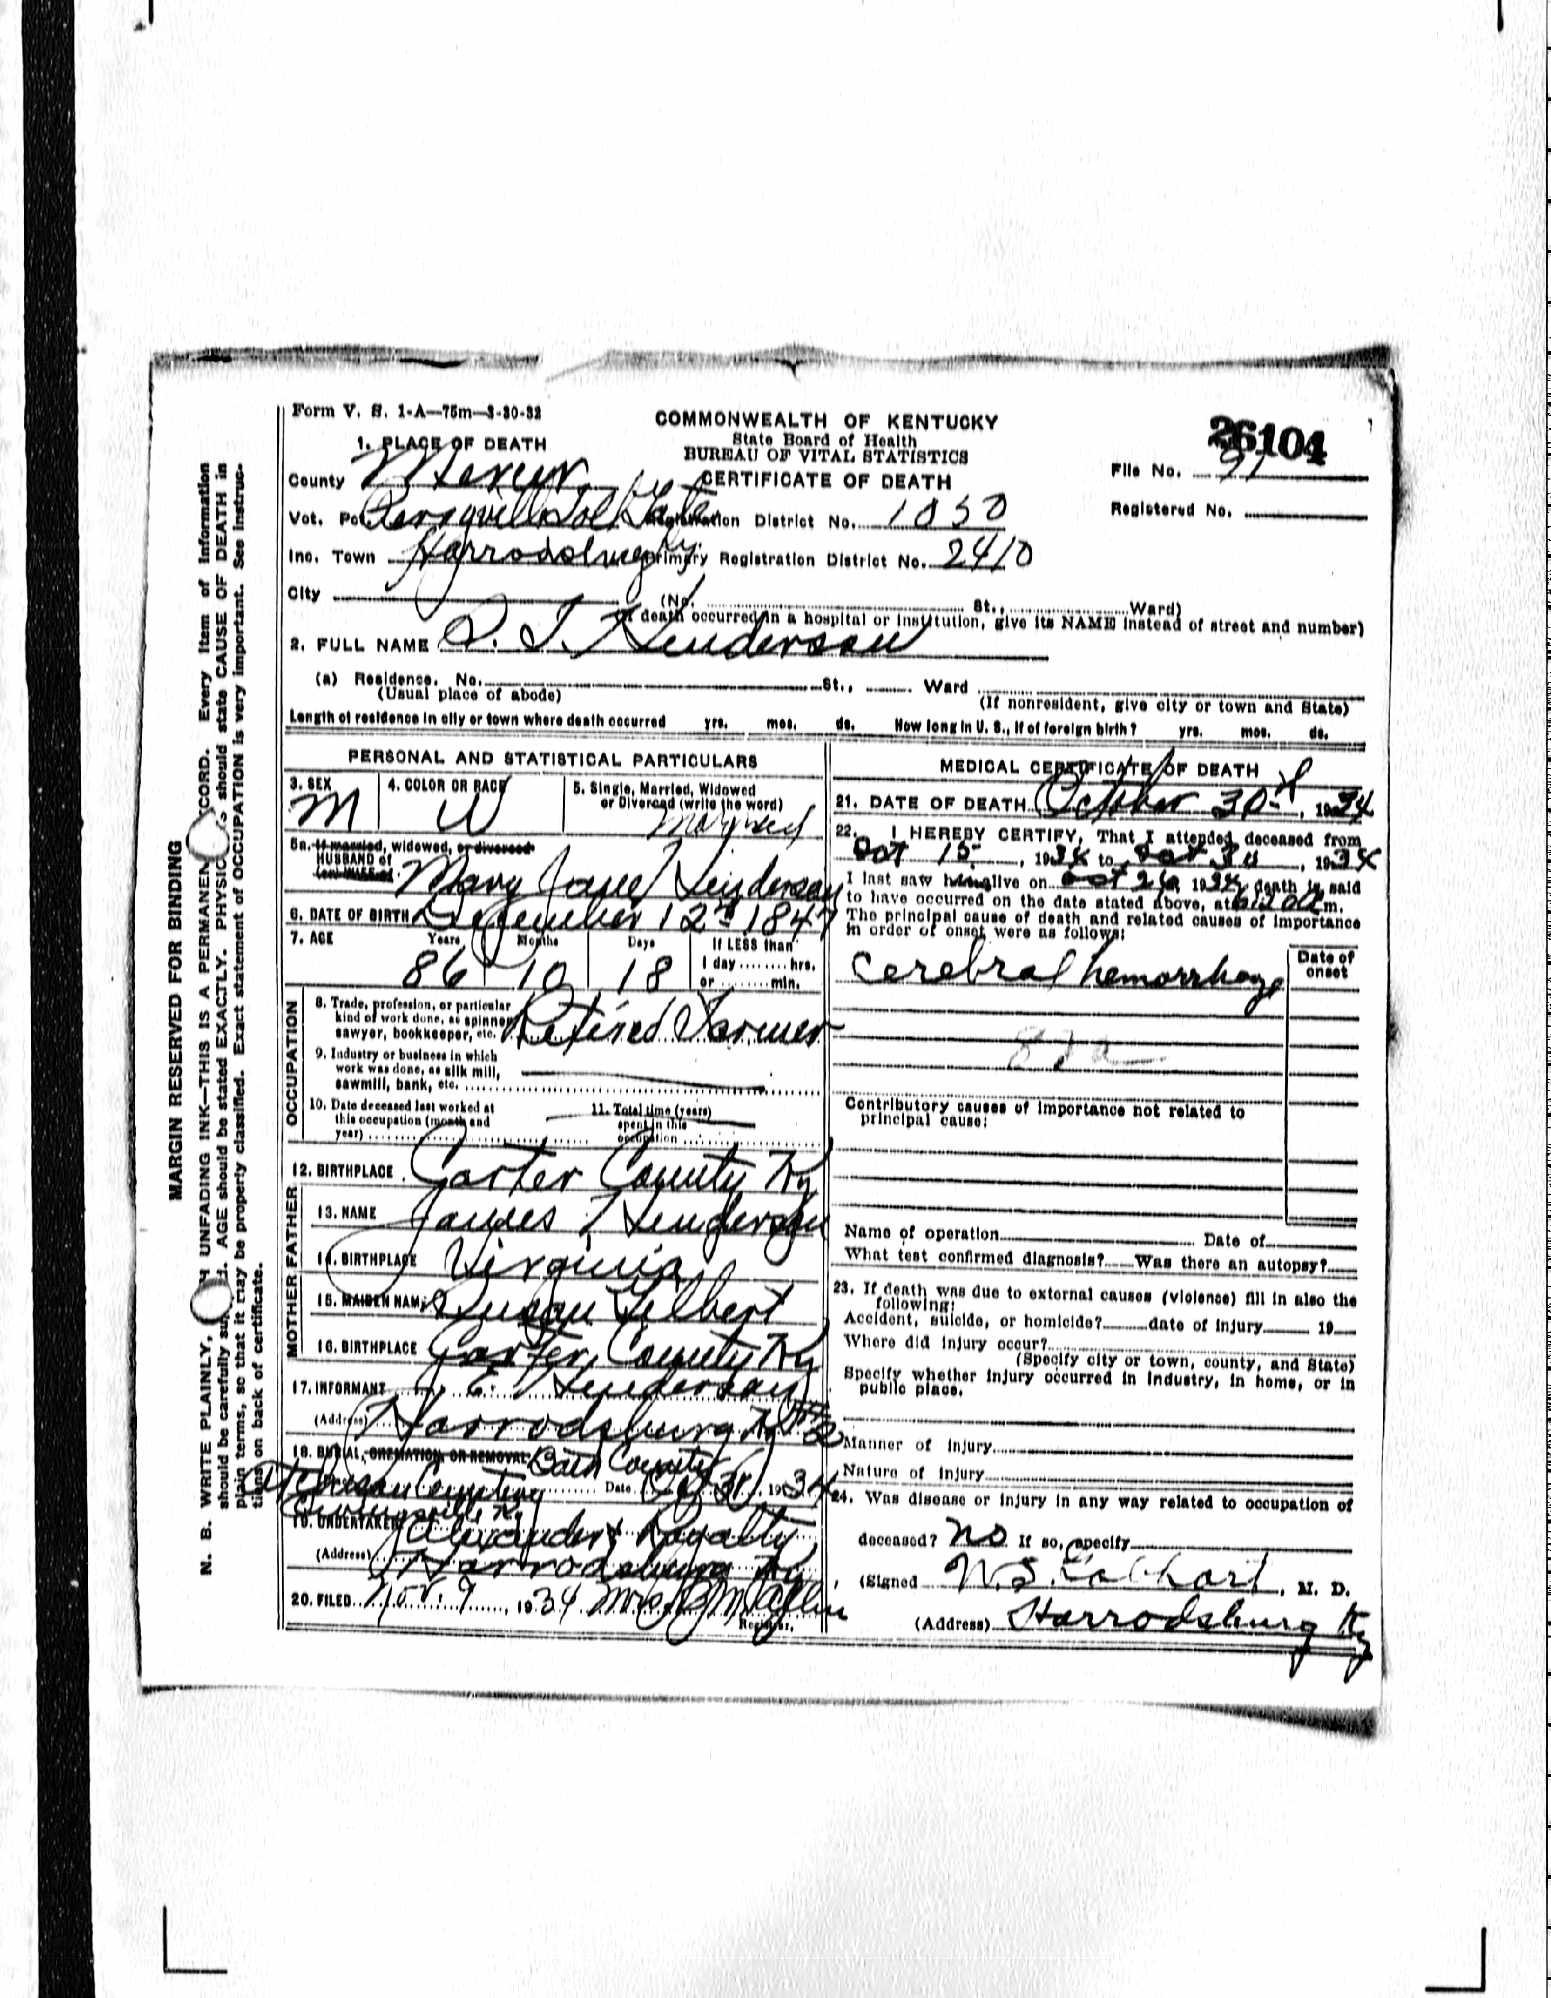 Form V. S. 1-A—75m—3-30-32
COMMONWEALTH OF KENTUCKY
State Board of Health
BUREAU OF VITAL STATISTICS
CERTIFICATE OF DEATH
26104
File No. 91
Registered No.
1. PLACE OF DEATH
County Mercer
Vot. Pct. Perryville Toll Gate Registration District No. 1050
Inc. Town Harrodsburg Ky. Primary Registration District No. 2410
City (No. St., Ward)
(If death occurred in a hospital or institution, give its NAME instead of street and number)
2. FULL NAME S. T. Henderson
(a) Residence. No. St., Ward
(Usual place of abode) (If nonresident, give city or town and State)
Length of residence in city or town where death occurred yrs. mos. ds. How long in U. S., if of foreign birth? yrs. mos. ds.
PERSONAL AND STATISTICAL PARTICULARS
3. SEX M
4. COLOR OR RACE W
5. Single, Married, Widowed or Divorced (write the word) Married
5a. If married, widowed, or divorced
HUSBAND of
(or) WIFE of Mary Jane Henderson
6. DATE OF BIRTH December 12 1847
7. AGE Years 86 Months 10 Days 18 If LESS than
1 day ........ hrs.
or ........ min.
OCCUPATION
8. Trade, profession, or particular
kind of work done, as spinner
sawyer, bookkeeper, etc. Retired Farmer
9. Industry or business in which
work was done, as silk mill,
sawmill, bank, etc.
10. Date deceased last worked at
this occupation (month and
year)
11. Total time (years)
spent in this
occupation
12. BIRTHPLACE Carter County Ky
FATHER
13. NAME James Henderson
14. BIRTHPLACE Virginia
MOTHER
15. MAIDEN NAME Susan Gilbert
16. BIRTHPLACE Carter County Ky
17. INFORMANT E. Henderson
(Address) Harrodsburg Ky
18. BURIAL, CREMATION OR REMOVAL Bath County
Cemetery Date Oct 31, 1934
19. UNDERTAKER Alexander & Royalty
(Address) Harrodsburg Ky
20. FILED Nov. 9, 1934 Mrs.
Registrar.
MEDICAL CERTIFICATE OF DEATH
21. DATE OF DEATH October 30, 1934
22. I HEREBY CERTIFY, That I attended deceased from
Oct 15, 1934 to Oct 30, 1934
I last saw him alive on Oct 1934, death is said
to have occurred on the date stated above, at m.
The principal cause of death and related causes of importance
in order of onset were as follows:
Date of onset
Cerebral hemorrhage
82a
Contributory causes of importance not related to
principal cause:
Name of operation Date of
What test confirmed diagnosis? Was there an autopsy?
23. If death was due to external causes (violence) fill in also the
following:
Accident, suicide, or homicide? date of injury 19
Where did injury occur?
(Specify city or town, county, and State)
Specify whether injury occurred in industry, in home, or in
public place.
Manner of injury
Nature of injury
24. Was disease or injury in any way related to occupation of
deceased? No If so, specify
(Signed , M. D.
(Address) Harrodsburg Ky
MARGIN RESERVED FOR BINDING
N. B. WRITE PLAINLY, UNFADING INK—THIS IS A PERMANEN CORD. Every item of information
should be carefully AGE should be stated EXACTLY. PHYSIC should state CAUSE OF DEATH in
plain terms, so that it may be properly classified. Exact statement of OCCUPATION is very important. See instruc-
tions on back of certificate.